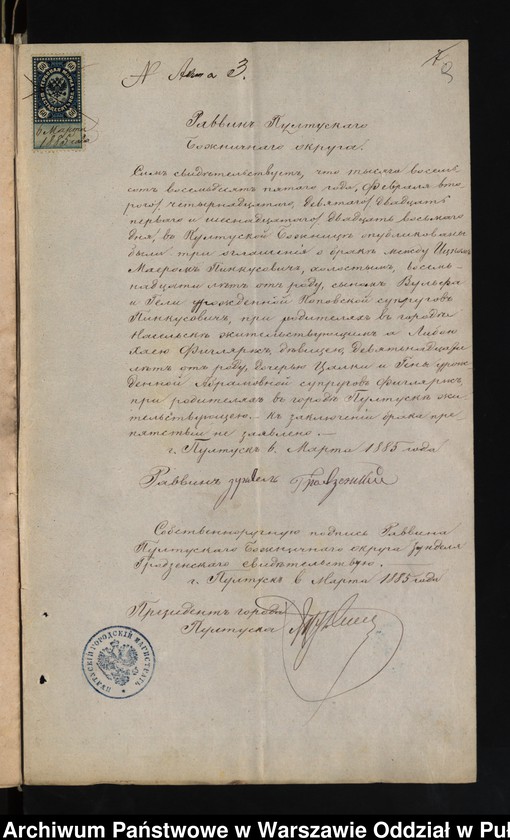 N Акта 3.
6 Марта
1885 года
Раввинъ Пултускаго
Божничнаго округа.
Симъ свидетельствуетъ, что тысяча восемь
сотъ восемьдесятъ пятаго года, Февраля вто
рого/четырнадцатаго, девятаго/двадцать
перваго и шестнадцатаго/двадцать восьмаго
дня, въ Пултуской Божнице опубликованы
были три оглашенія о браке между Ицкомъ
Маеромъ Пинкусовичъ, холостымъ, восем-
надцати летъ отъ роду, сыномъ Вульфа
и Гели урожденной Поповской супруговъ
Пинкусовичъ, при родителяхъ въ городе
Насельске жительствующимъ а Либою
Хаею Фигляржъ, девицею, девятнадцати
летъ отъ роду, дочерью Цалки и уроже
денной Абрамовной супруговъ Фигляржъ,
при родителяхъ въ городе Пултуске жи-
тельствующею — къ заключенію брака пре
пятствій не заявлено. —
г. Пултускъ 6. Марта 1885 года
Раввинъ
Собственноручную подпись Раввина
Пултускаго Божничнаго округа Зунделя
Гродзенскаго свидетельствую.
г. Пултускъ 6 Марта 1885 года
Президентъ города
Пултуска
ПУЛТУСКІЙ ГОРОДСКІЙ МАГИСТРАТЪ
Archiwum Państwowe w Warszawie Oddział w Puł